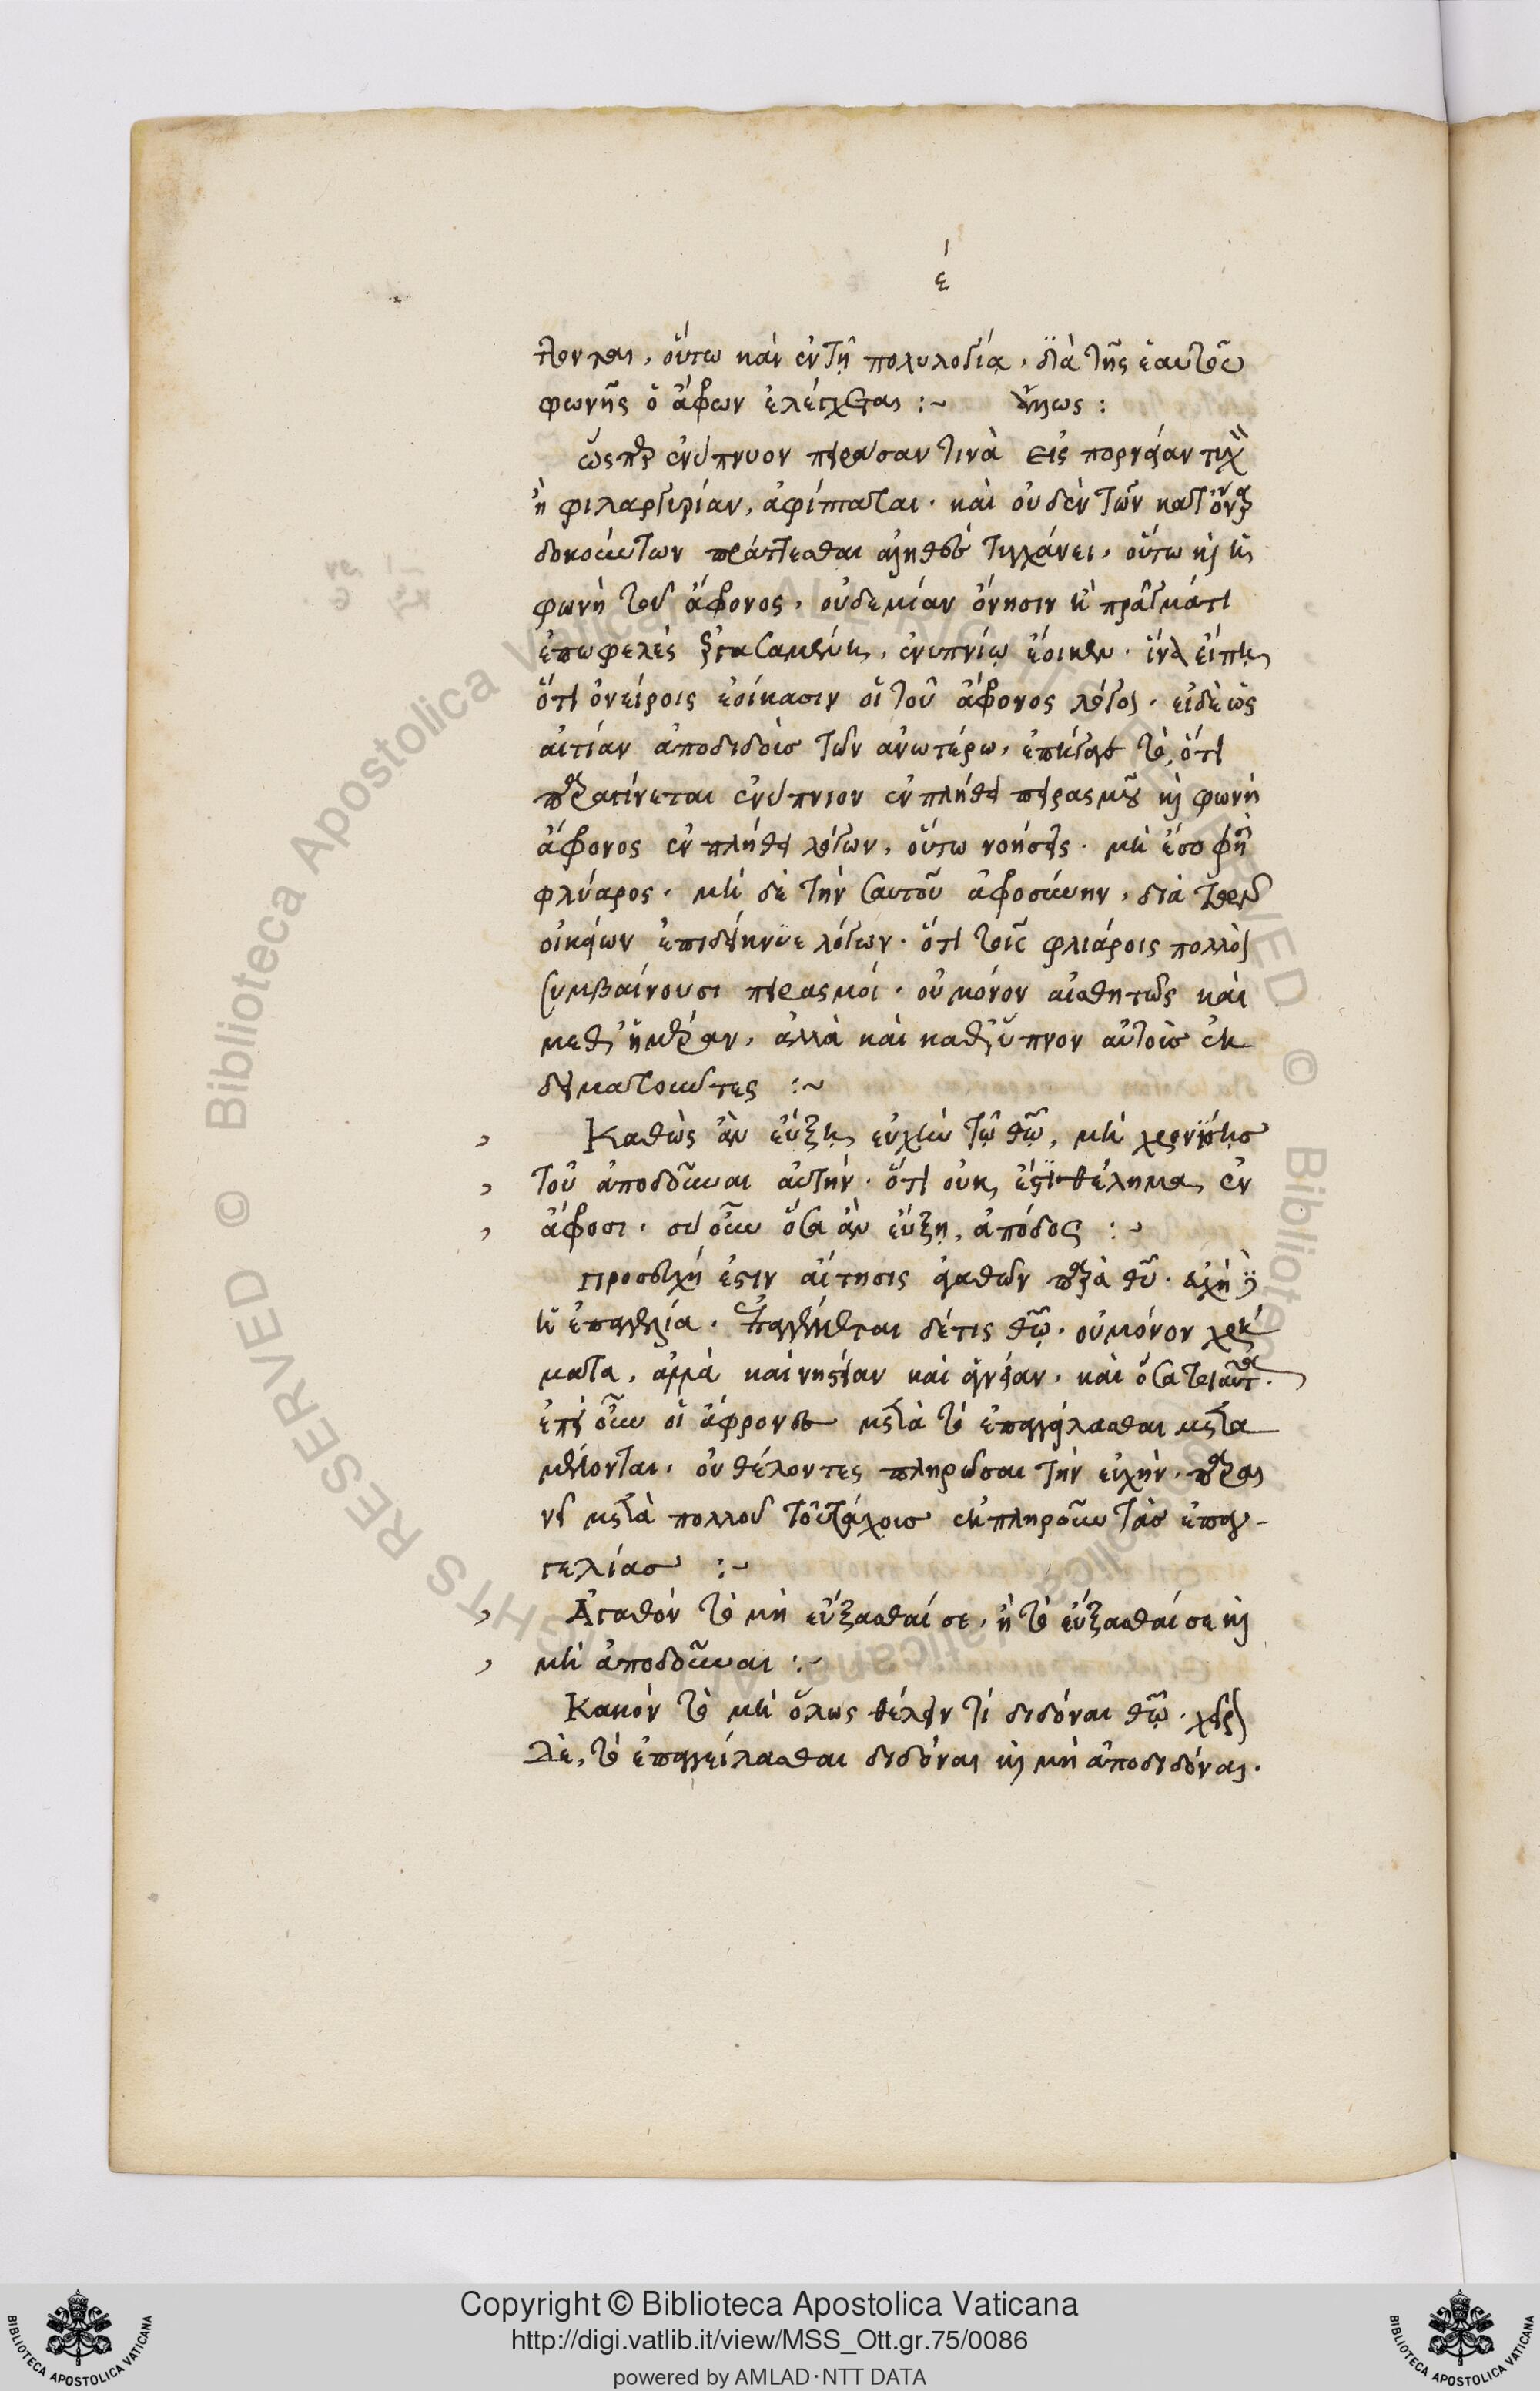 έ
πονται, οὕτω καὶ ἐν τῇ πολυλογίᾳ, διὰ τῆς ἑαυτοῦ
φωνῆς ὁ ἄφρων ἐλέγχεται :~ ἄλλως :
ὥσπερ ἐνύπνιον πειράσαν τινὰ εἰς πορνείαν τυχὸν
ἢ φιλαργυρίαν, ἀφίπταται· καὶ οὐδὲν τῶν κατ' ὄναρ
δοκούντων πράττεσθαι ἀληθὲς τυγχάνει, οὕτω καὶ ἡ
φωνὴ τοῦ ἄφρονος, οὐδεμίαν ὄνησιν ἢ πρᾶγμά τι
ἐπωφελὲς ἐργασαμένη, ἐνυπνίῳ ἔοικεν· ἵνα εἴπῃ
ὅτι ὀνείροις ἐοίκασιν οἱ τοῦ ἄφρονος λόγοι· εἰ δὲ ὡς
αἰτίαν ἀποδιδοὺς τῶν ἀνωτέρω, ἐπήγαγε τὸ, ὅτι
παραγίνεται ἐνύπνιον ἐν πλήθει πειρασμοῦ καὶ φωνὴ
ἄφρονος ἐν πλήθει λόγων, οὕτω νοήσεις· μὴ ἔσο φησὶ
φλύαρος· μὴ δὲ τὴν σαυτοῦ ἀφροσύνην, διὰ τῶν
οἰκείων ἐπιδείκνυε λόγων· ὅτι τοῖς φλυάροις πολλοὶ
συμβαίνουσι πειρασμοί· οὐ μόνον αἰσθητῶς καὶ
μεθ' ἡμέραν, ἀλλὰ καὶ καθ' ὕπνον αὐτοὺς ἐκ
δειματοῦντες :~
Καθὼς ἂν εὔξῃ εὐχὴν τῷ θῷ, μὴ χρονίσῃς
τοῦ ἀποδοῦναι αὐτήν· ὅτι οὐκ ἔστι θέλημα ἐν
ἄφροσι· σὺ οὖν ὅσα ἂν εὔξῃ, ἀπόδος :~
Προσευχή ἐστιν αἴτησις ἀγαθῶν παρὰ θῦ· εὐχὴ δὲ
ἡ ἐπαγγελία· ἐπαγγέλλεται δέ τις θῷ· οὐ μόνον χρή
ματα, ἀλλὰ καὶ νηστείαν καὶ ἁγνείαν, καὶ ὅσα τοιαῦτα.
ἐπεὶ οὖν οἱ ἄφρονες μετὰ τὸ ἐπαγγείλασθαι μετα
μέλονται, οὐ θέλοντες πληρῶσαι τὴν εὐχήν, παραι
νεῖ μετὰ πολλοῦ τοῦ τάχους ἐκπληροῦν τὰς ἐπαγ-
γελίας :~
Ἀγαθὸν τὸ μὴ εὔξασθαί σε, ἢ τὸ εὔξασθαί σε καὶ
μὴ ἀποδοῦναι :~
Κακὸν τὸ μὴ ὅλως θέλειν τί διδόναι θῷ· χεῖρον
δὲ, τὸ ἐπαγγείλασθαι διδόναι καὶ μὴ ἀποδιδόναι.
Copyright © Biblioteca Apostolica Vaticana
http://digi.vatlib.it/view/MSS_Ott.gr.75/0086
powered by AMLAD·NTT DATA